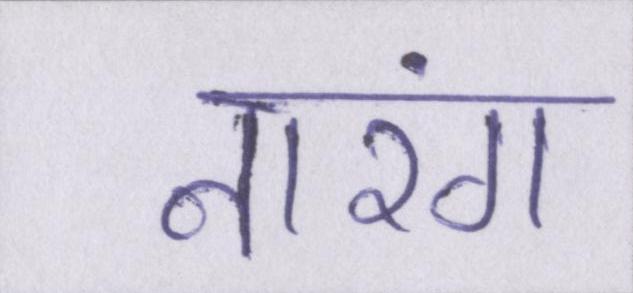 नारंग